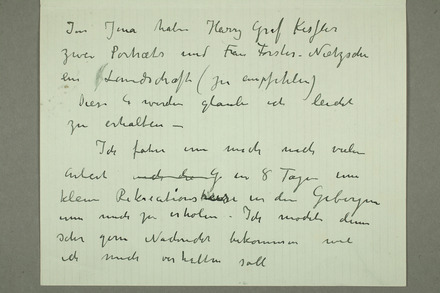 In Jena haben Harry Graf Kessler
zwei Portraits und Frau Förster-Nietzsche
ein Landschaft (zu empfehlen)
Diese 6 werden glaube ich leicht
zu erhalten —
Ich fahre nun noch nach vieler
Arbeit in 8 Tagen um
kleine Rekreationsreise in den Gebirgen
um mich zu erholen. Ich möchte dann
sehr gern Nachricht bekommen wie
ich mich verhalten soll